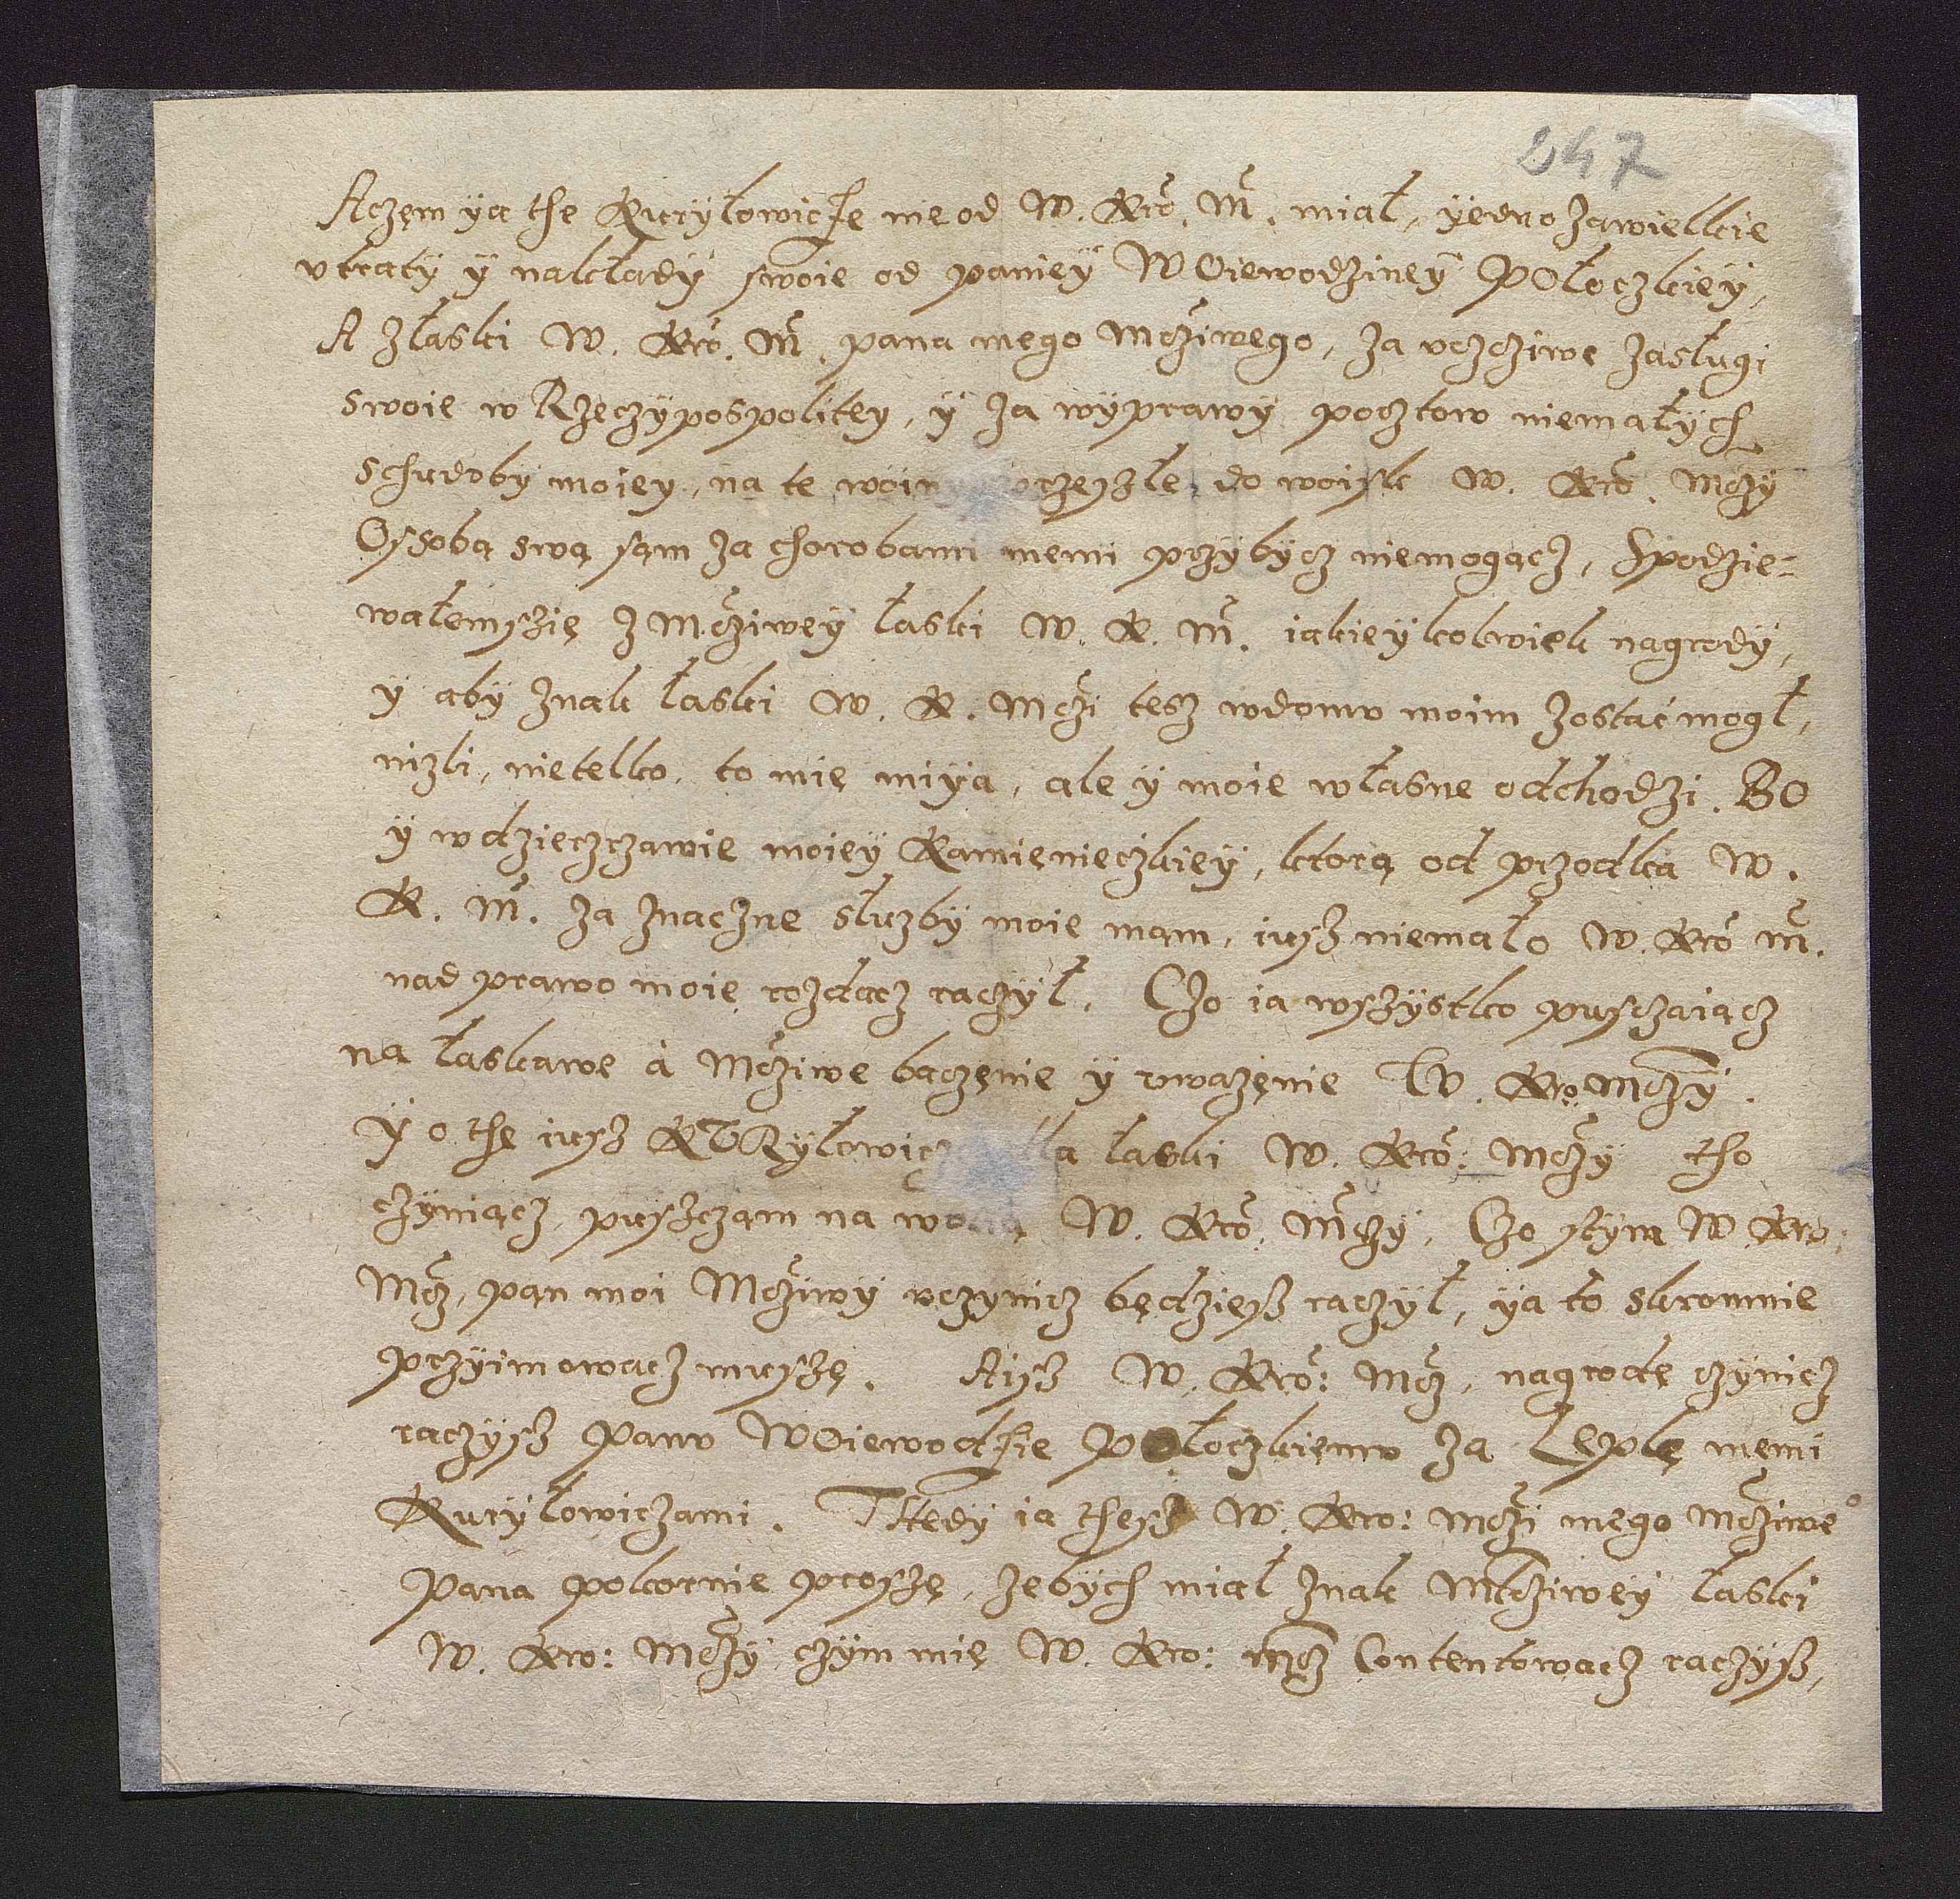 247
Aczęm ÿa the Kurÿlowicze nie od W. Kró. M̃. miał, ÿedno zawielkie
vtratÿ ÿ nakładÿ swoie od panieÿ WOiewodzineÿ POłoczkieÿ,
A złaski W. Kró. M̃. pana mego Mcziwego, za vczcziwe zasługi
swoie w Rzeczÿpospolitey, ÿ za wÿprawÿ pocztow niemałÿch
schudoby moiey, na te woiny do woisk W. Kró. Mczÿ
Ossobą swą sąm za chorobami memi przÿbÿcz niemogącz, Spodzie=
wałemszię z Mcziweÿ łaski W. K. M̃. iakieÿkolwiek nagrodÿ,
ÿ abÿ znak łaski W. K. Mczi tesz wdomv moim zostać mogł,
nizli, nietelko, to mię miÿa, ale ÿ moie własne odchodzi. BO
ÿ wdzierzawie moieÿ Kamienieczkieÿ, ktorą od przodka W.
K. M̃. za znaczne służbÿ moie mam, iusz niemało W. Kró M̃.
nad prawo moie rozdacz raczÿł. Czo ia wszÿstko pusczaiącz
na łaskawe à Mcziwe baczęnie ÿ vważęnie W. Kro. Mczÿ.
ÿ o the iusz KVRÿłowicz łaski W. Kró: Mczÿ tho
czÿniącz, puszczam na wolą W. Kró. M̃czÿ, Czo stÿm W Kro:
Mcz, pąn moi Mcziwÿ vczÿnicz będziesz raczÿł, ÿa to skromnie
przÿimowacz muszę. Aisz W. Kró: Mcz, nagrodę czÿnicz
raczÿsz Panv WOiewodzie POłoczkiemv za Leplę memi
Kurÿłowiczami. Thedÿ ia thesz W. Kro: Mczi mego Mcziwe°
Pana pokornie proszę, zebÿch miał znak Mcziweÿ łaski
W. Kro: Mczÿ, czÿm mię W. Kro: Mcz Contentowacz raczÿsz,